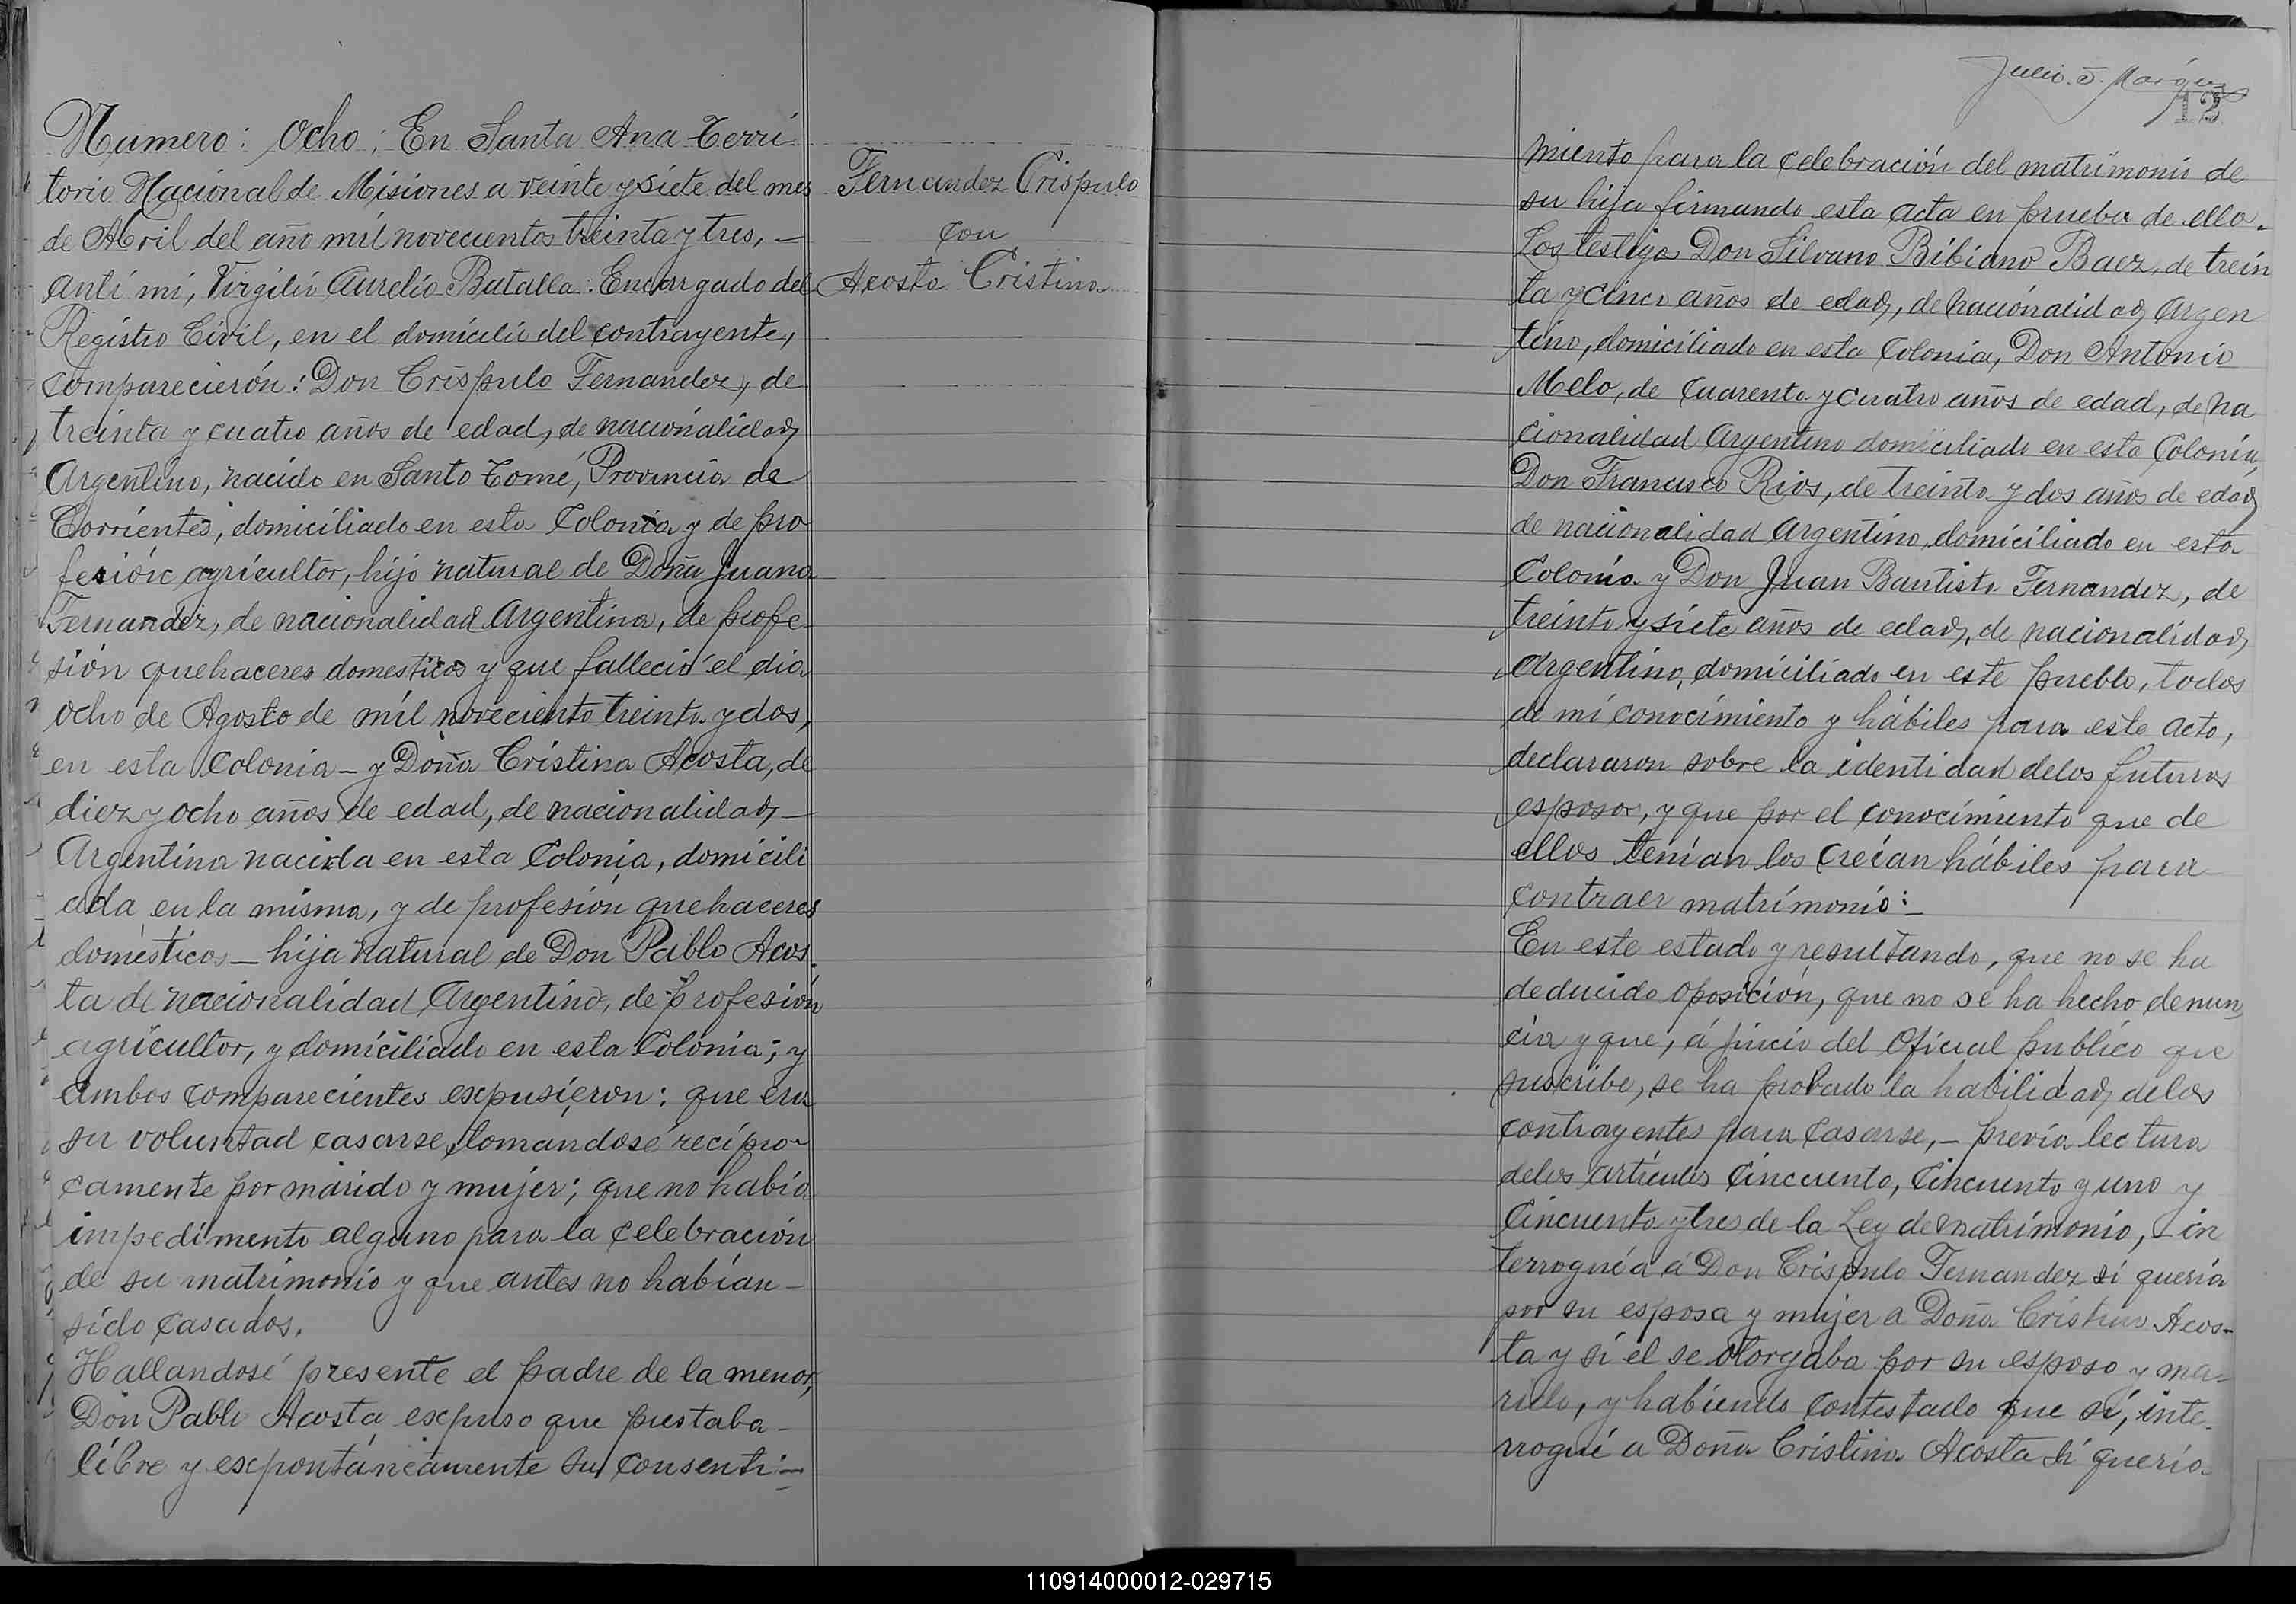 Numero: Ocho: En Santa Ana Terri
torio Nacional de Misiones a veinte y siete del mes
de Abril del año mil novecientos treinta y tres, —
Anti mi, Virgilio Aurelio Batalla. Encargado del
Registro Civil, en el domicilio del contrayente,
comparecierón: Don Crispulo Fernandez, de
treinta y cuatro años de edad, de nacionalidad
Argentino, nacido en Santo Tomé, Provincia de
Corrientes, domiciliado en esta Colonia y de pro
fesión agricultor, hijo natural de Doña Juana
Fernandez, de nacionalidad Argentina, de profe
sión quehaceres domesticos y que falleció el dia
ocho de Agosto de mil noveciento treinta y dos,
en esta Colonia — y Doña Cristina Acosta, de
diez y ocho años de edad, de nacionalidad —
Argentina nacida en esta Colonia, domicili
ada en la misma, y de profesión quehaceres
domésticos — hija natural de Don Pablo Acos
ta de nacionalidad Argentino, de profesión
agricultor, y domiciliado en esta Colonia; y
ambos comparecientes expusieron: que era
su voluntad casarse, tomándosé recípro-
camente por marido y mujer; que no había
impedimento alguno para la celebración
de su matrimonio y que antes no habían —
sido casados.
Hallandosé presente el padre de la menor,
Don Pablo Acosta, expuso que prestaba —
libre y expontáneamente su consenti:—
Fernandez Crispulo
con
Acosta Cristina
Julio. S. Marquez
12
miento para la celebración del matrimonio de
su hija firmando esta acta en prueba de ello.
Los testigos Don Silvano Bibiano Baez, de trein
ta y cinco años de edad, de nacionalidad Argen
tino, domiciliado en esta Colonia, Don Antonio
Melo, de cuarenta y cuatro años de edad, de na
cionalidad Argentino domiciliado en esta Colonia,
Don Francisco Rios, de treinta y dos años de edad
de nacionalidad Argentino, domiciliado en esta
Colonia y Don Juan Bautista Fernandez, de
treinta y siete años de edad, de nacionalidad
Argentino, domiciliado en este pueblo, todos
de mi conocimiento y hábiles para este acto,
declararon sobre la identidad delos futuros
esposos, y que por el conocimiento que de
ellos tenían los creían hábiles para
contraer matrimonio:—
En este estado y resultando, que no se ha
deducido oposición, que no se ha hecho denun
cia y que, á juicio del Oficial público que
suscribe, se ha probado la habilidad delos
contrayentes para casarse, — previa lectura
delos artículos cincuenta, cincuenta y uno y
cincuenta y tres de la Ley de matrimonio, in
terroguéa á Don Crispulo Fernandez si quería
por su esposa y mujer a Doña Cristina Acos-
ta y si el se otorgaba por su esposo y ma-
rido, y habiendo contestado que sí, inte-
rrogué a Doña Cristina Acosta si quería
110914000012-029715